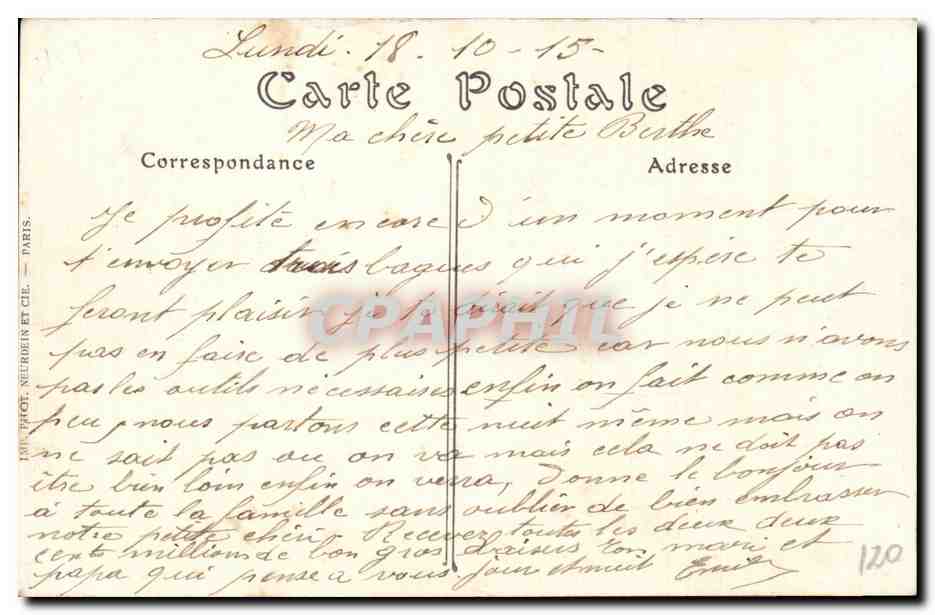 Lundi. 18 - 10 - 15 -
Carte Postale
Ma chère petite Berthe
Correspondance
Adresse
Je profite encore d'un moment pour
t'envoyer trois bagues qui j'espère te
feront plaisir je te dirait que je ne peut
pas en faire de plus petite car nous n'avons
pas les outils nécessaires enfin on fait comme on
peu, nous partons cette nuit même mais on
ne sait pas ou on va mais cela ne doit pas
être bien loin enfin on verra, Donne le bonjour
à toute la famille sans oublier de bien embrasser
notre petite chéri. Recevez toutes les deux deux
cents millions de bon gros baisers ton mari et
papa qui pense a vous jour et nuit Emile
IMP. PHOT. NEURDEIN ET CIE. — PARIS.
CPAPHIL
120